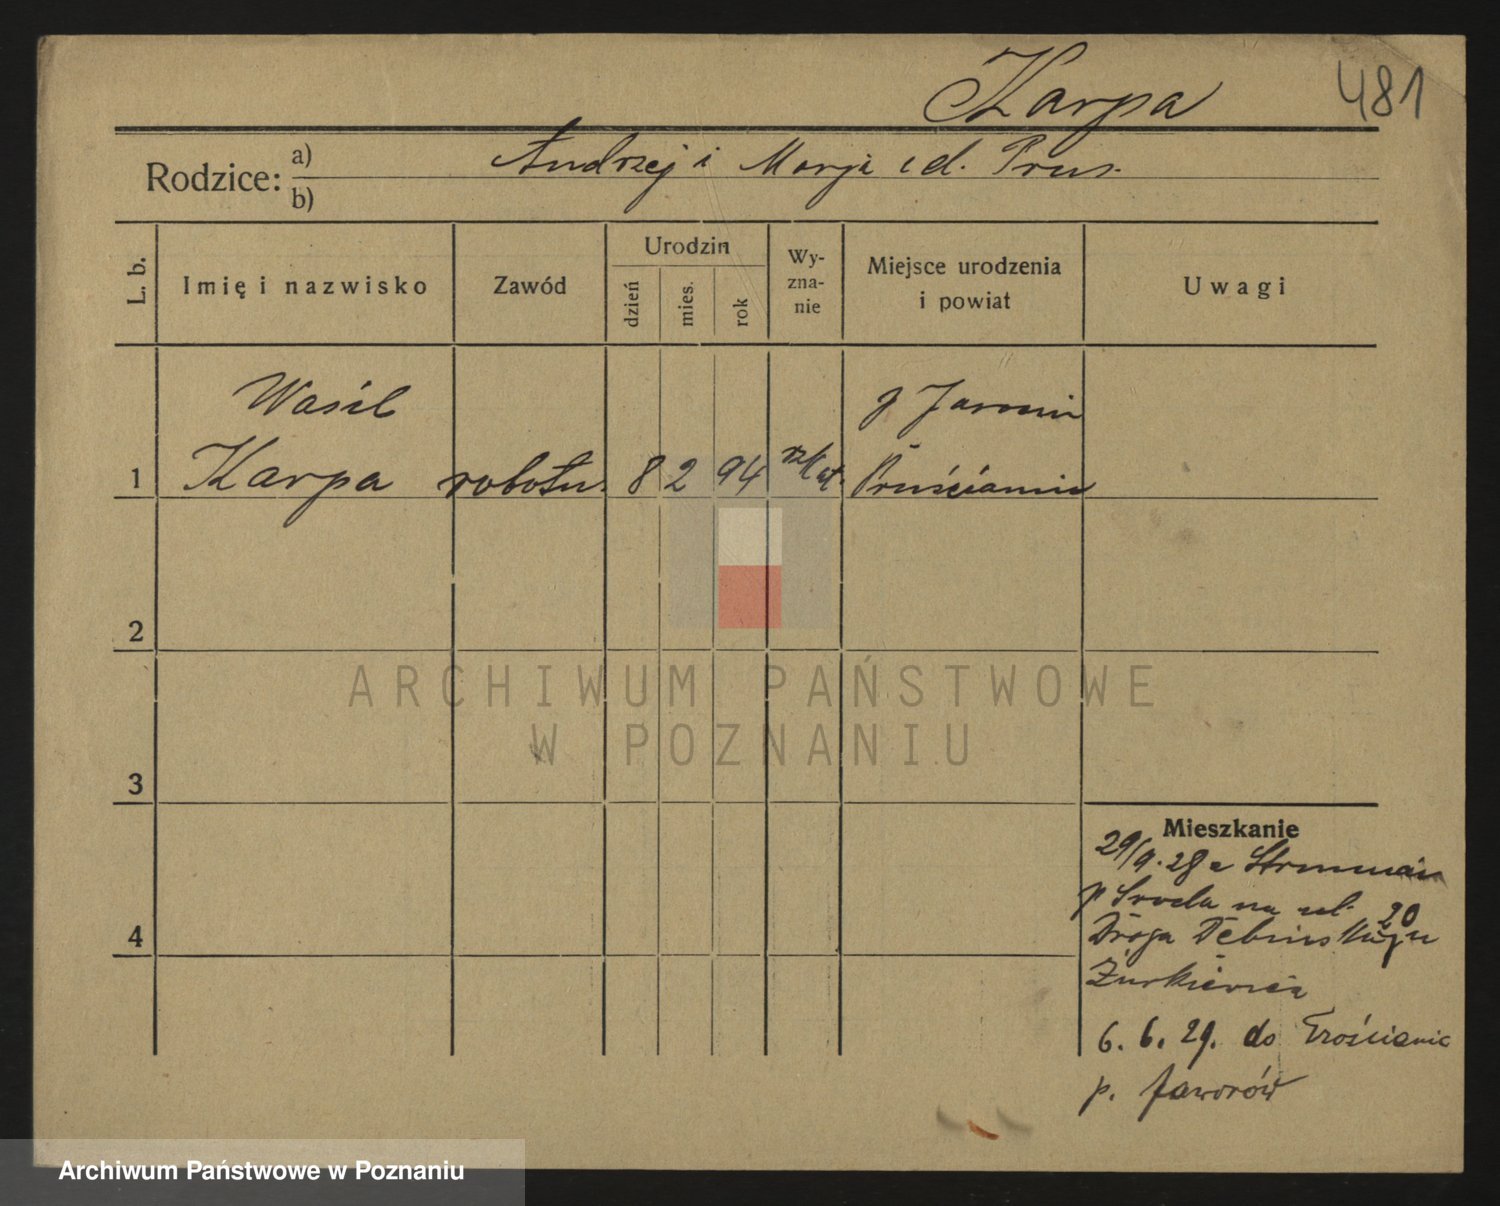 Karpa
481
Rodzice: a) Andrzej i Marja id. Prus.
b)
L. b.
Imię i nazwisko
Zawód
Urodzin
dzień
mies.
rok
Wy-
zna-
nie
Miejsce urodzenia
i powiat
Uwagi
Wasil
1 Karpa robotn. 8 2 94 rz kat.
2
3
4
ARCHIWUM PAŃSTWOWE
W POZNANIU
Mieszkanie
29/9.28 z
p Sroda na ul. 20
Droga Dębinska
6. 6. 29. do Trościanie
p. Jaworów
Archiwum Państwowe w Poznaniu